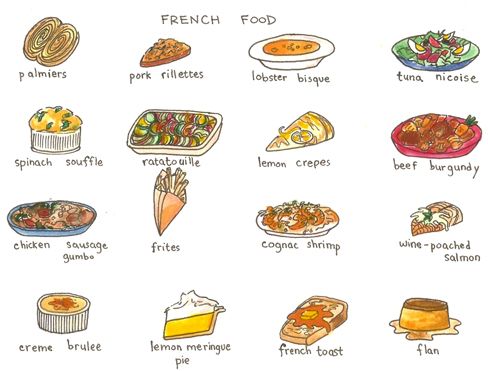 FRENCH FOOD
palmiers
pork rillettes
lobster bisque
tuna nicoise
spinach souffle
ratatouille
lemon crepes
beef burgundy
chicken sausage
gumbo
frites
cognac shrimp
wine-poached
salmon
creme brulee
lemon meringue
pie
french toast
flan